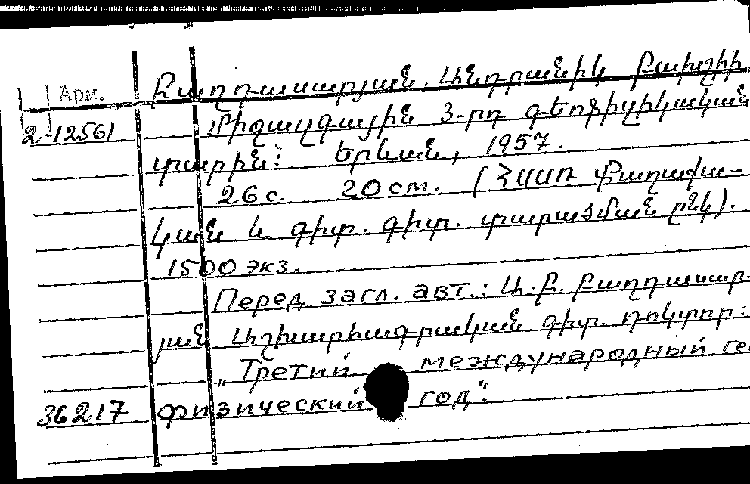 Арм. Բաղդասարյան, Անդրանիկ Բախշիի
2-12561 Միջազգային 3-րդ գեոֆիզիկական
տարին: Երևան, 1957.
26 с. 20 см. (ՀՍՍՌ Քաղաքա-
կան և գիտ. գիտ. տարածման ընկ).
1500 экз.
Перед загл. авт.: Ա. Բ. Բաղդասար-
յան Աշխարհագրական գիտ. դոկտոր.
„Третий международный гео
36217 физический год".